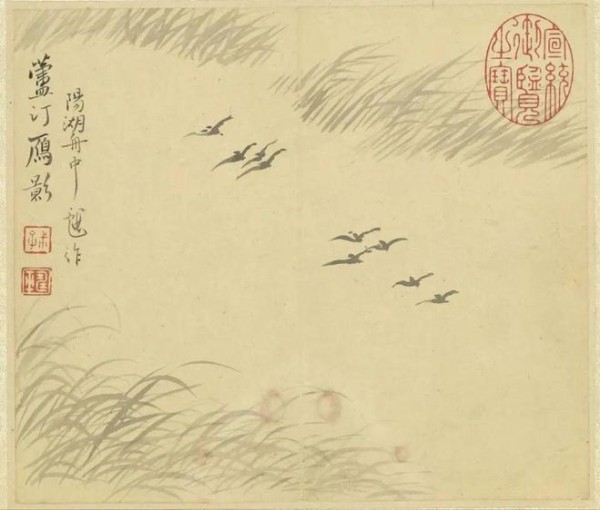 蘆汀鴈影
陽湖舟中作
宣統
御覽
之寶